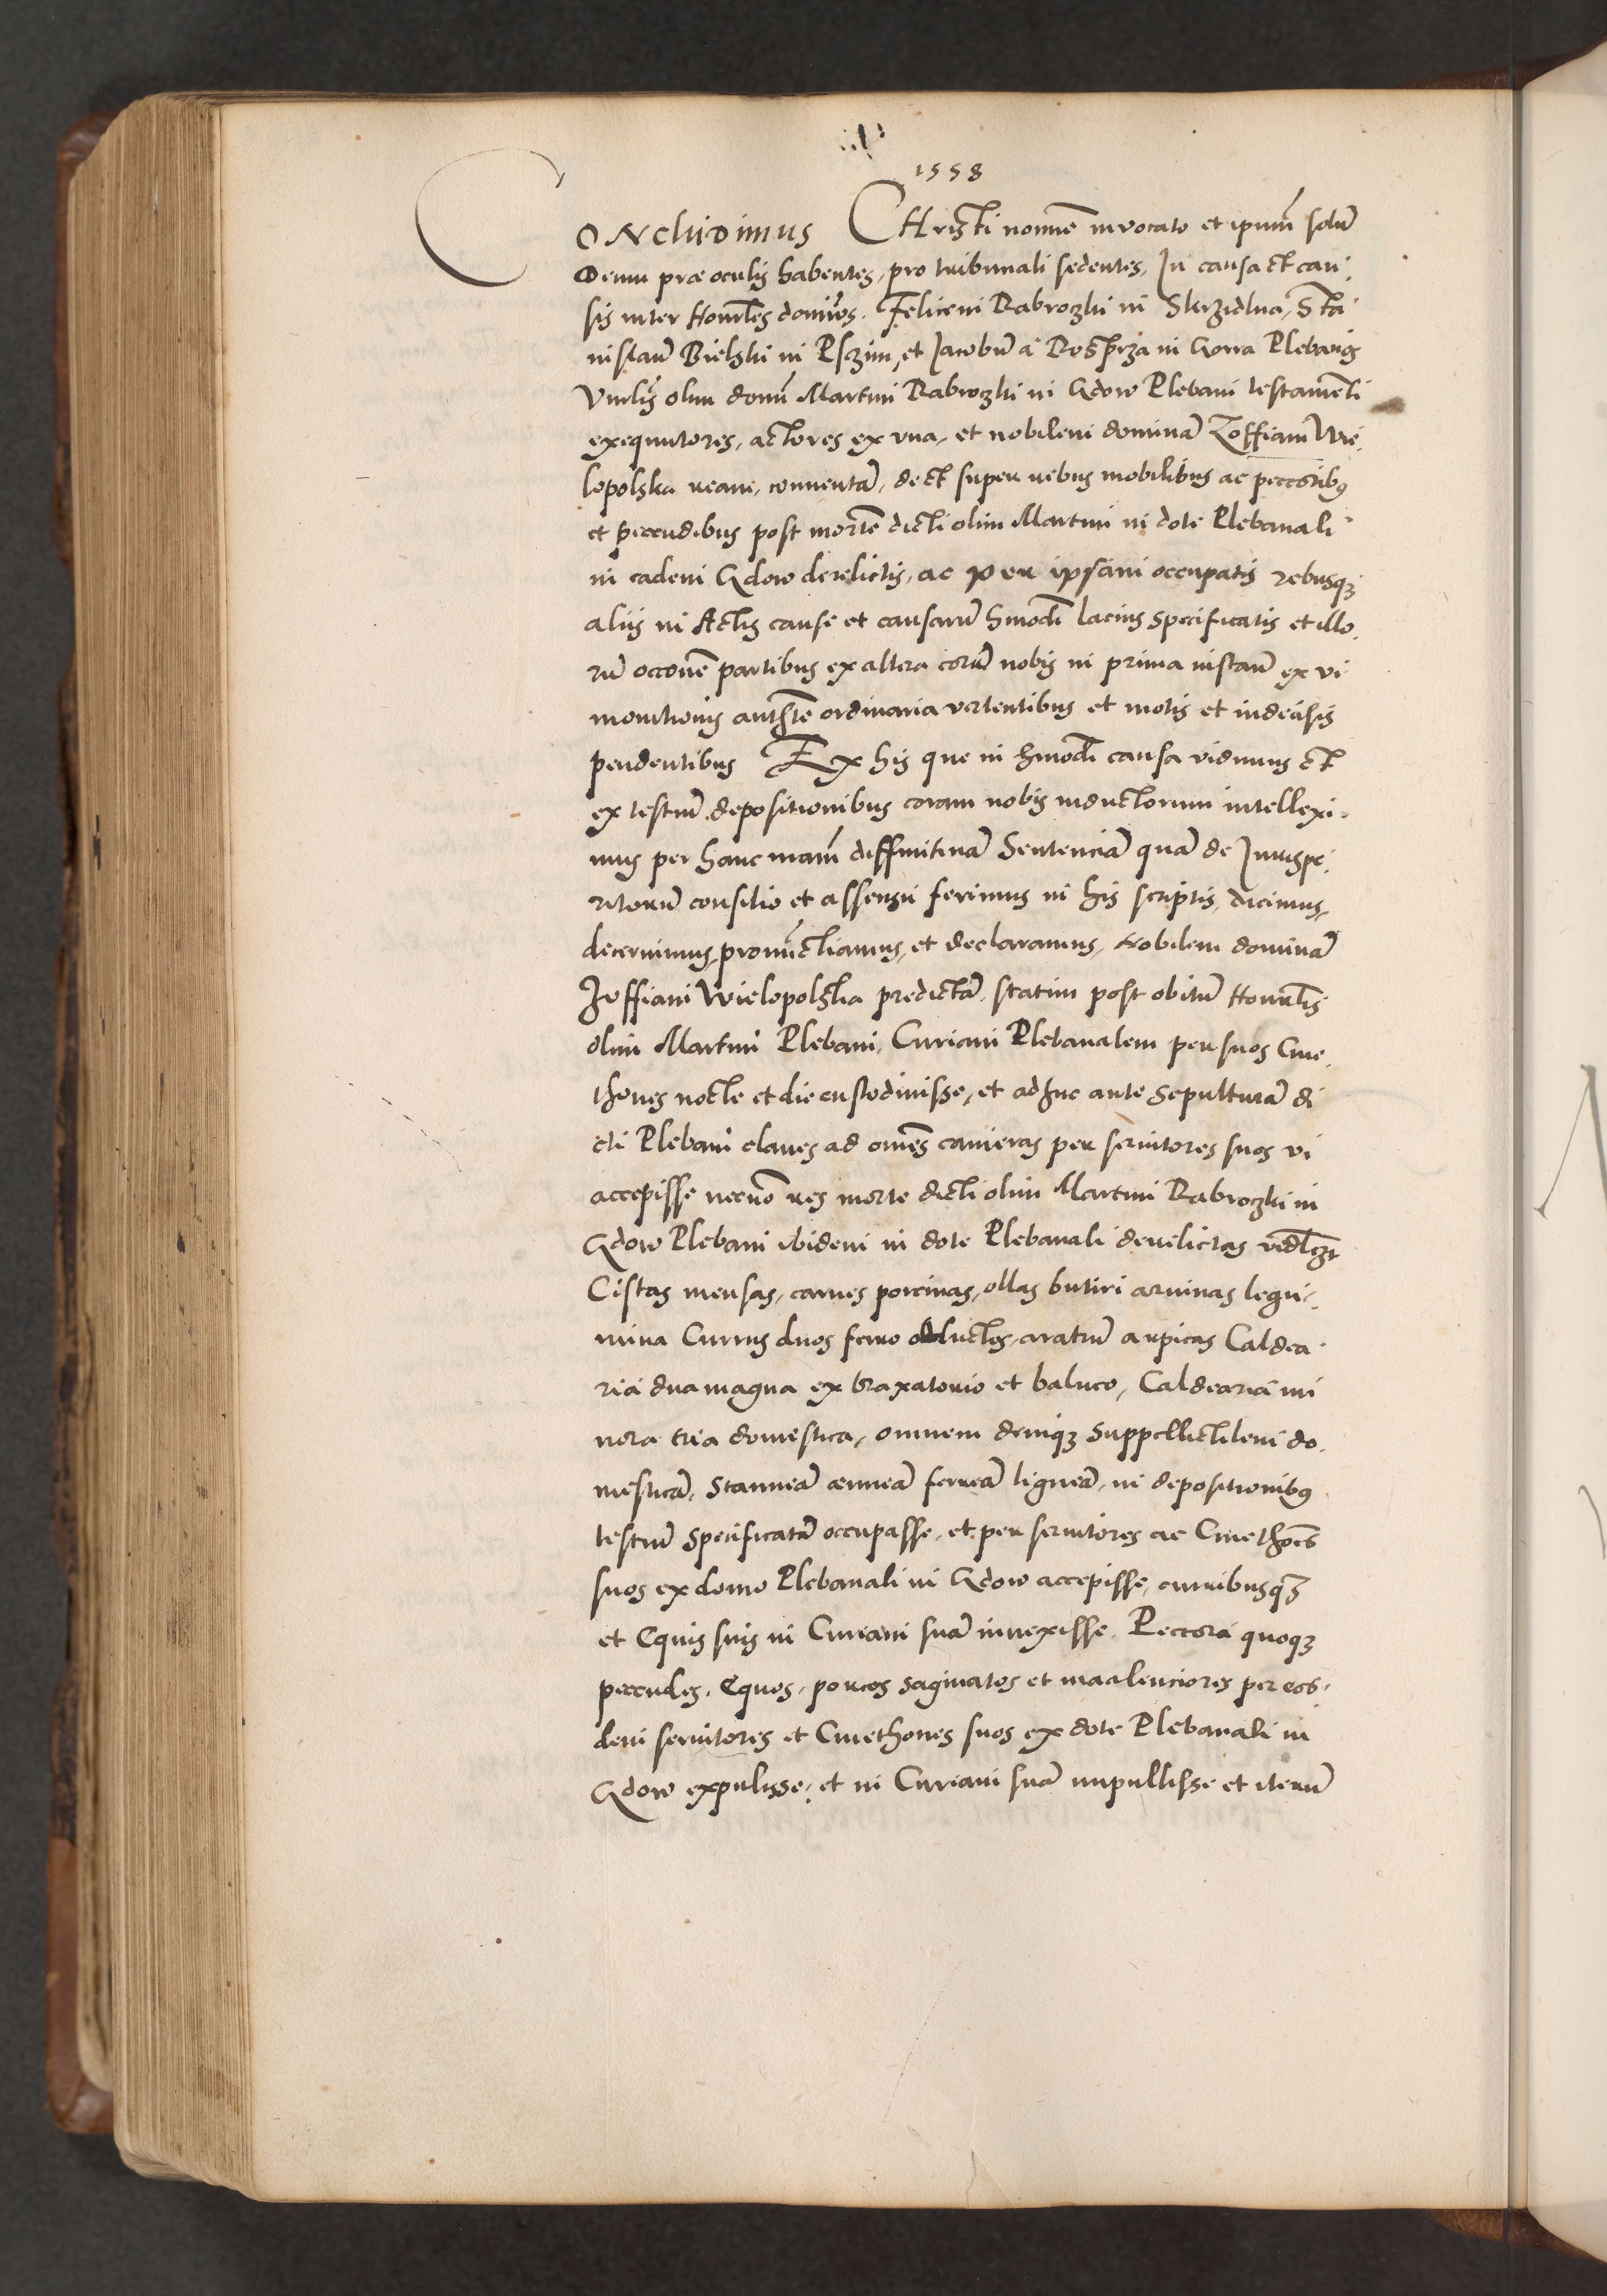 1558
CONcludimus CHristi nomine invocato et ipsum solum
Deum præ oculis habentes, pro tribunali sedentes, In causa et cau
sis inter Honorabiles dominos. Felicem Rabrozki in Skrzidlna, Sta
nislaum Bielski in Psczim, et Jacobum a Rosprza in Gorra Plebanos
olim domini Martini Rabrozki in Gdow Plebani testamenti
exequutores, actores ex vna, et nobilem dominam Zoffiam Wie
lopolska ream, conuentam, de et super rebus mobilibus ac peccoribus
et peccudibus post mortem dicti olim Martini in dote Plebanali
in eadem Gdow derelictis, ac per ipsam occupatis rebusque
aliis in Actis cause et causarum hmodi lacius specificatis et illo
rum occone partibus ex altera coram nobis in prima instantia ex vi
monitionis authte ordinaria vertentibus et motis et indecisis
pendentibus Ex his que in hmodi causa vidimus et
ex testium depositionibus coram nobis inductorum intellexi
mus per hanc nostram diffinitiuam Sentenciam quam de Jurispe
ritorum consilio et assensu ferimus in his scriptis, dicimus,
decernimus, pronunctiamus, et declaramus, Nobilem dominam
Zoffiam Wielopolska predictam, statim post obitum Honorabilis
olim Martini Plebani, Curiam Plebanalem per suos Cme
thones nocte et die custodiuisse, et adhuc ante sepulturam di
cti Plebani claues ad omnes cameras per seruitores suos vi
accepisse necnon res morte dicti olim Martini Rabrozki in
Gdow Plebani ibidem in dote Plebanali derelictas videlicet
Cistas mensas, carnes porcinas, ollas butiri aruinas legu
mina Currus duos ferro obductos, aratrum arpicas Caldea
ria dua magna ex braxatorio et balneo, Caldearia mi
nora tria domestica, omnem denique suppellictilem do
mesticam, stanneam aenneam ferream ligneam, in depositionibus
testium specificatam occupasse, et per seruitores ac Cmethones
suos ex domo Plebanali in Gdow accepisse, curribusque
et Equis suis in Curiam suam inuexisse. Peccora quoque
peccudes, Equos, porcos saginatos et macilenciores per eos
dem seruitores et Cmethones suos ex dote Plebanali in
Gdow expulisse, et in Curiam suam impullisse et iterum